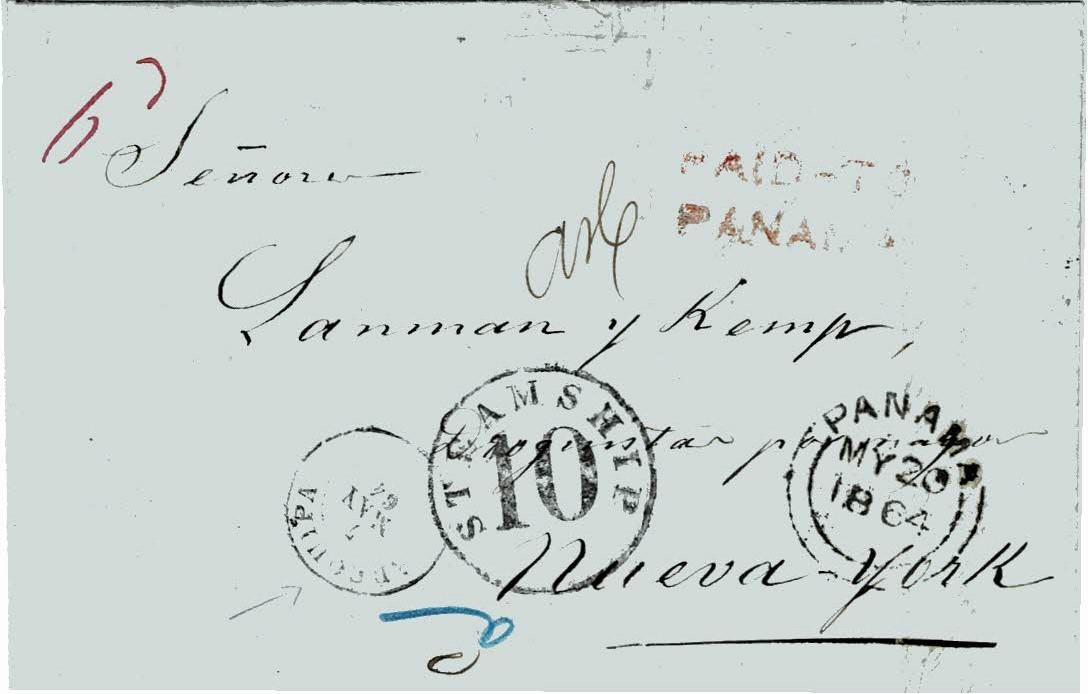 Señores
PAID-TO
PANAMA
Lanman y Kemp,
STEAMSHIP
10
PANAMA
MY 20
1864
Droguistas por mayor
AREQUIPA
Nueva-York